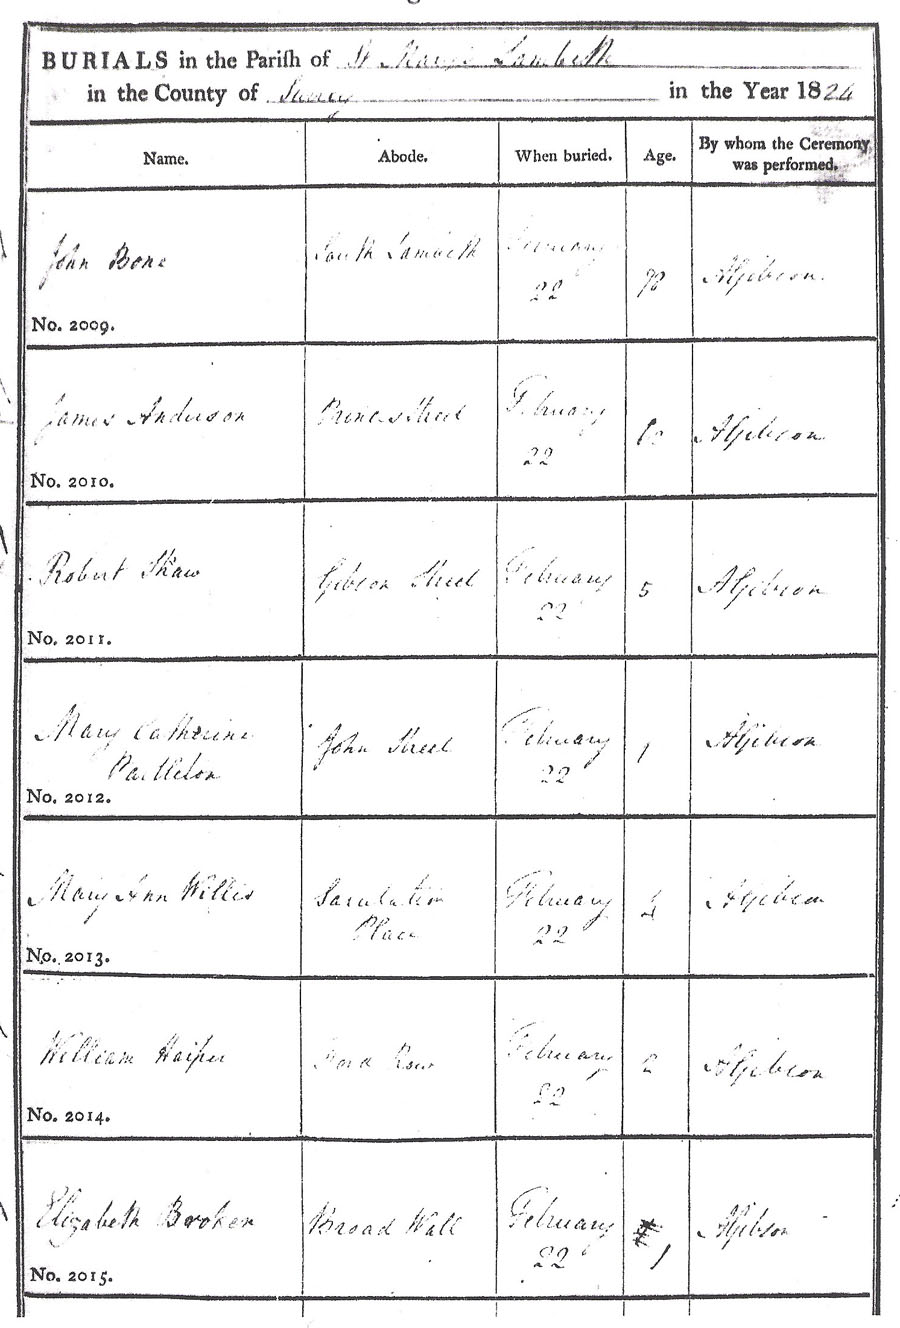 BURIALS in the Parish of St Mary's Lambeth
in the County of Surrey in the Year 1824
Name. Abode. When buried. Age. By whom the Ceremony was performed.
John Bone South Lambeth February 22 AGibson.
No. 2009.
James Anderson Princes Street February 22 AGibson
No. 2010.
Robert Shaw Gibson Street February 22 5 AGibson
No. 2011.
Mary Catherine John Street February 22 1 AGibson
Partleton
No. 2012.
Mary Ann Willis Place February 22 AGibson
No. 2013.
William Harper Row February 22 2 AGibson
No. 2014.
Elizabeth Broken Broad Wall February 22 1 AGibson
No. 2015.